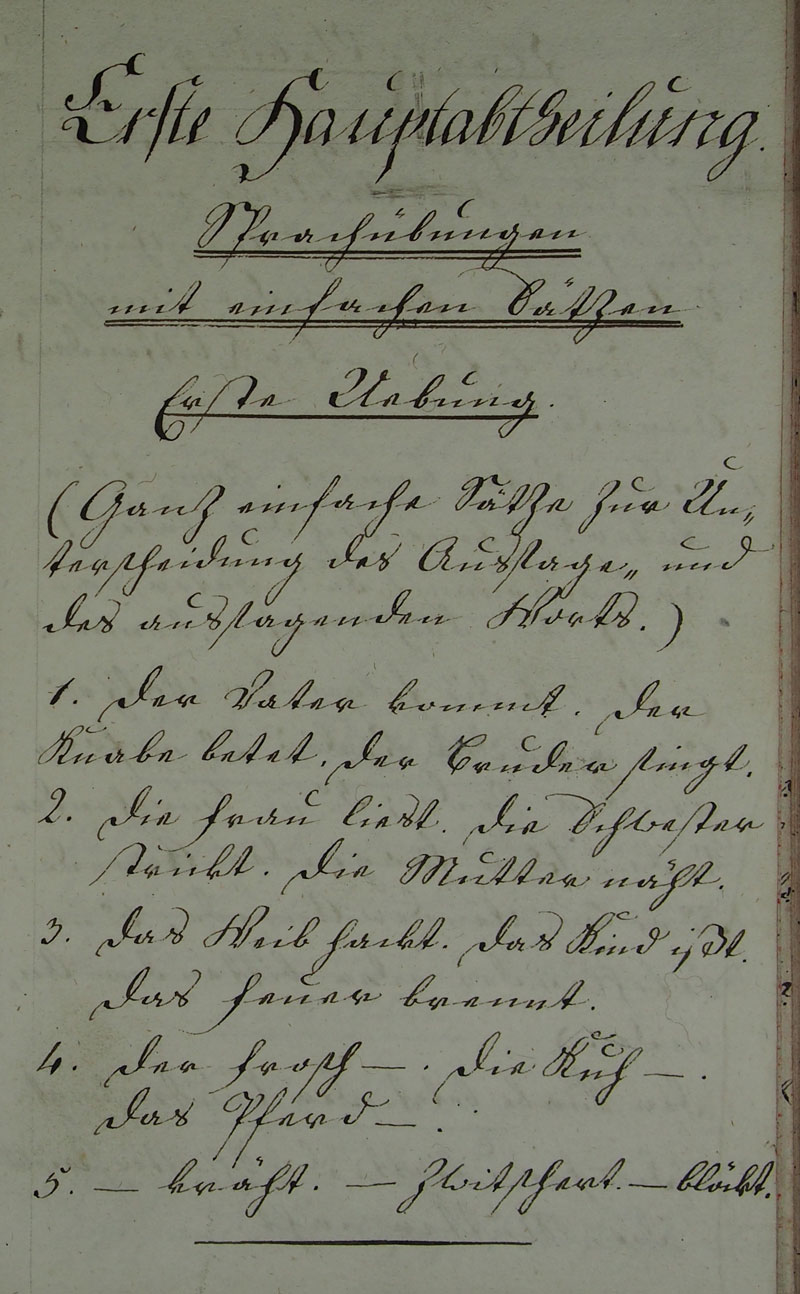 Erste Hauptabtheilung.
Sprachübungen
mit einfachen Sätzen
Erste Uebung.
(Ganz einfache Sätze zur Un„
terscheidung des Aussage„ und
des aussagenden Worts.)
1. Der Vater kommt. Der
Knabe betet. Der Bruder singt.
2. Die Frau liest. Die Schwester
strickt. Die Mutter näht.
3. Das Weib hackt. Das Kind ißt.
Das Feuer brennt.
4. Der Frosch —. Die Kuh —.
Das Pferd —.
5. — kräht. — zwitschert. — blöckt.